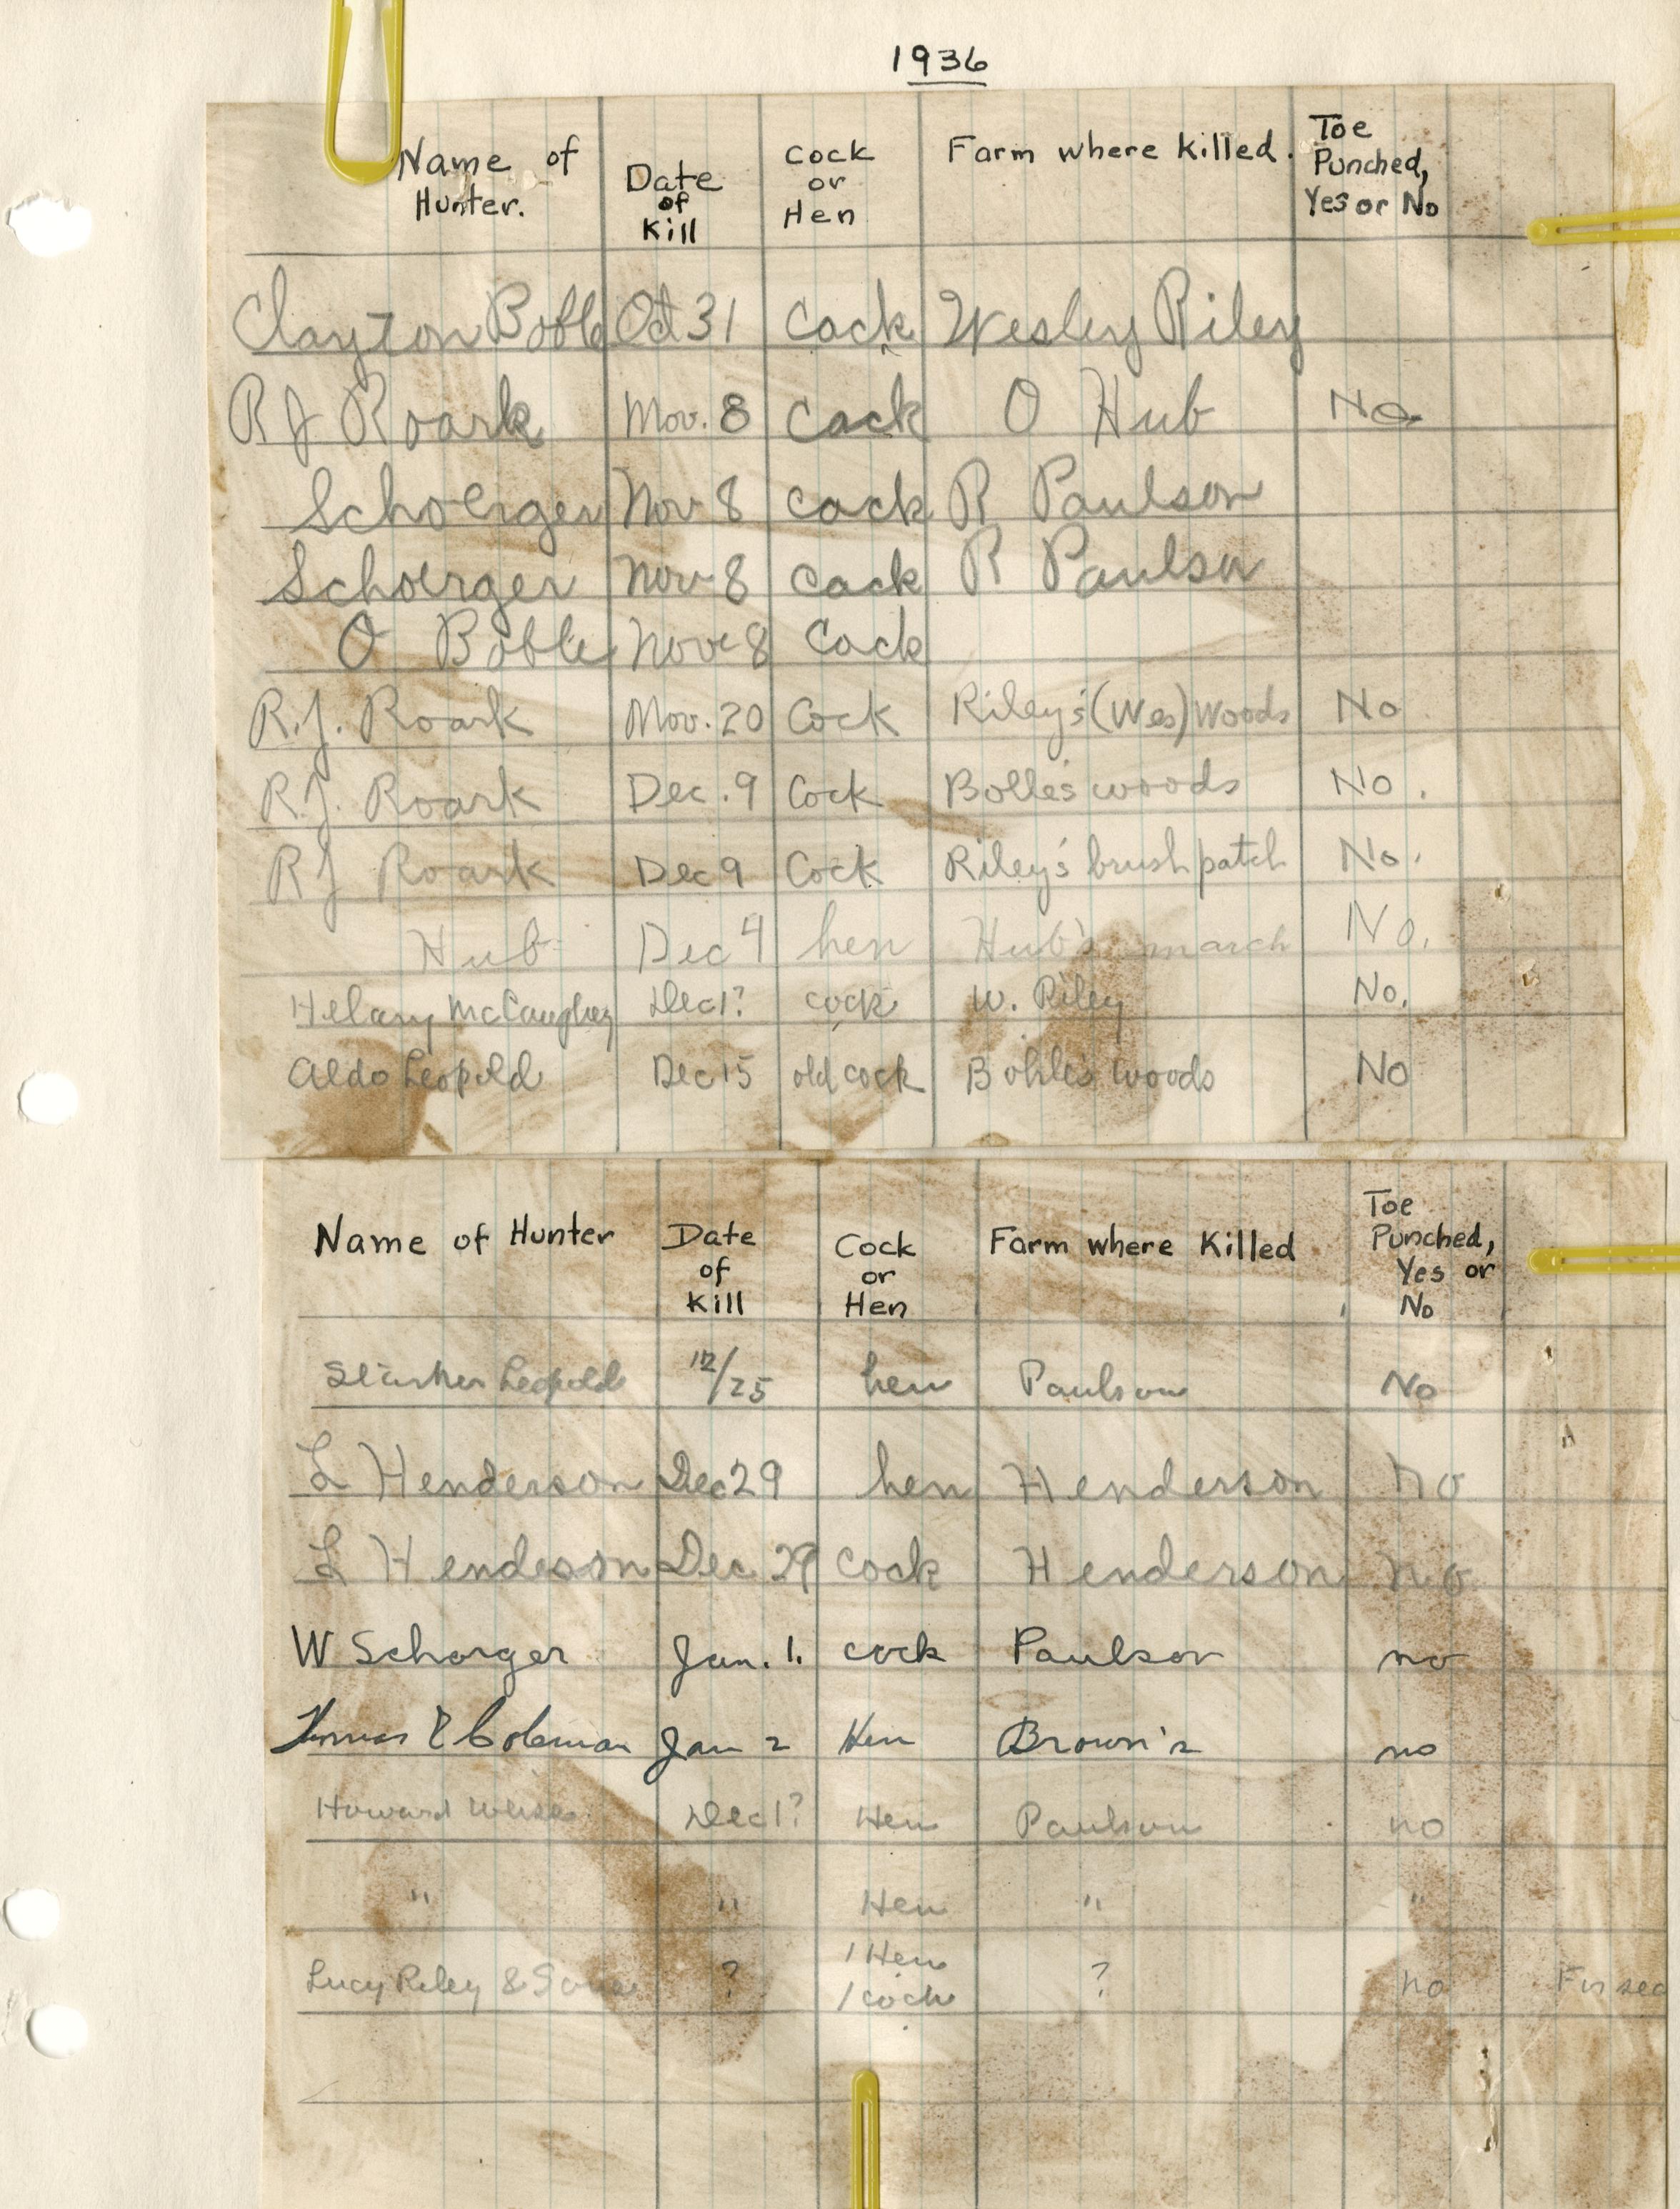 1936
Name of Hunter. Date of Kill Cock or Hen Farm where Killed. Toe Punched, Yes or No
Clayton Boble Oct 31 Cock Wesley Riley
R J Roark Nov. 8 Cock O Hub No
Schoerger Nov 8 Cock R Paulson
Schoerger Nov 8 Cock R Paulson
O Boble Nov 8 Cock
R.J. Roark Nov. 20 Cock Riley's (Wes) Woods No
R.J. Roark Dec. 9 Cock Bolle's woods No.
R J Roark Dec 9 Cock Riley's brush patch No.
Hub Dec 4 hen Hub's march No.
Helary McCaughey Dec 1? cock W. Riley No.
Aldo Leopold Dec 15 old cock Bohle's woods No
Name of Hunter Date of Kill Cock or Hen Farm where Killed Toe Punched, Yes or No
Starker Leopold 12/25 hen Paulson No
L Henderson Dec 29 hen Henderson no
L Hendeson Dec 29 Cock Henderson no
W Schorger Jan. 1. cock Paulson no
Thomas E Coleman Jan 2 Hen Brown's no
Howard Weiss Dec 1? Hen Paulson no
" " Hen " "
Lucy Riley & Sons ? 1 Hen 1 cock ? no